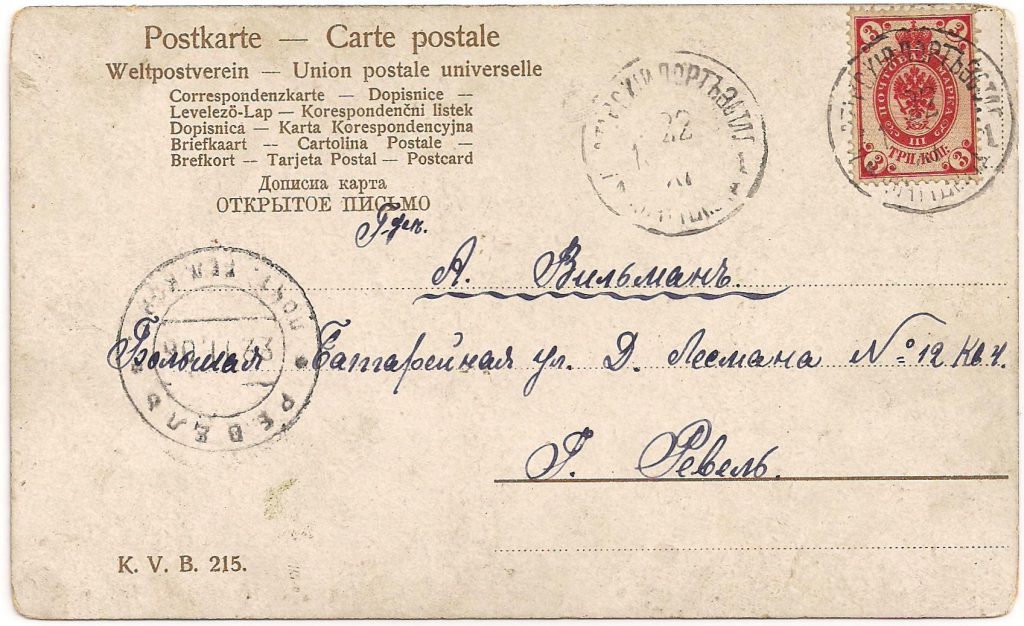 Postkarte — Carte postale
Weltpostverein — Union postale universelle
Correspondenzkarte — Dopisnice —
Levelező-Lap — Korespondenčni listek
Dopisnica — Karta Korespondencyjna
Briefkaart — Cartolina Postale —
Brefkort — Tarjeta Postal — Postcard
Дописна карта
ОТКРЫТОЕ ПИСЬМО
А. Вильманъ.
Большая Баттарейная ул. Д. Лесмана № 12 кв 4.
Г. Ревель.
K. V. B. 215.
3 3
ПОЧТОВАЯ МАРКА
III
ТРИ КОП:
3 3
ПОРТЪ
22
1
РЕВЕЛЬ